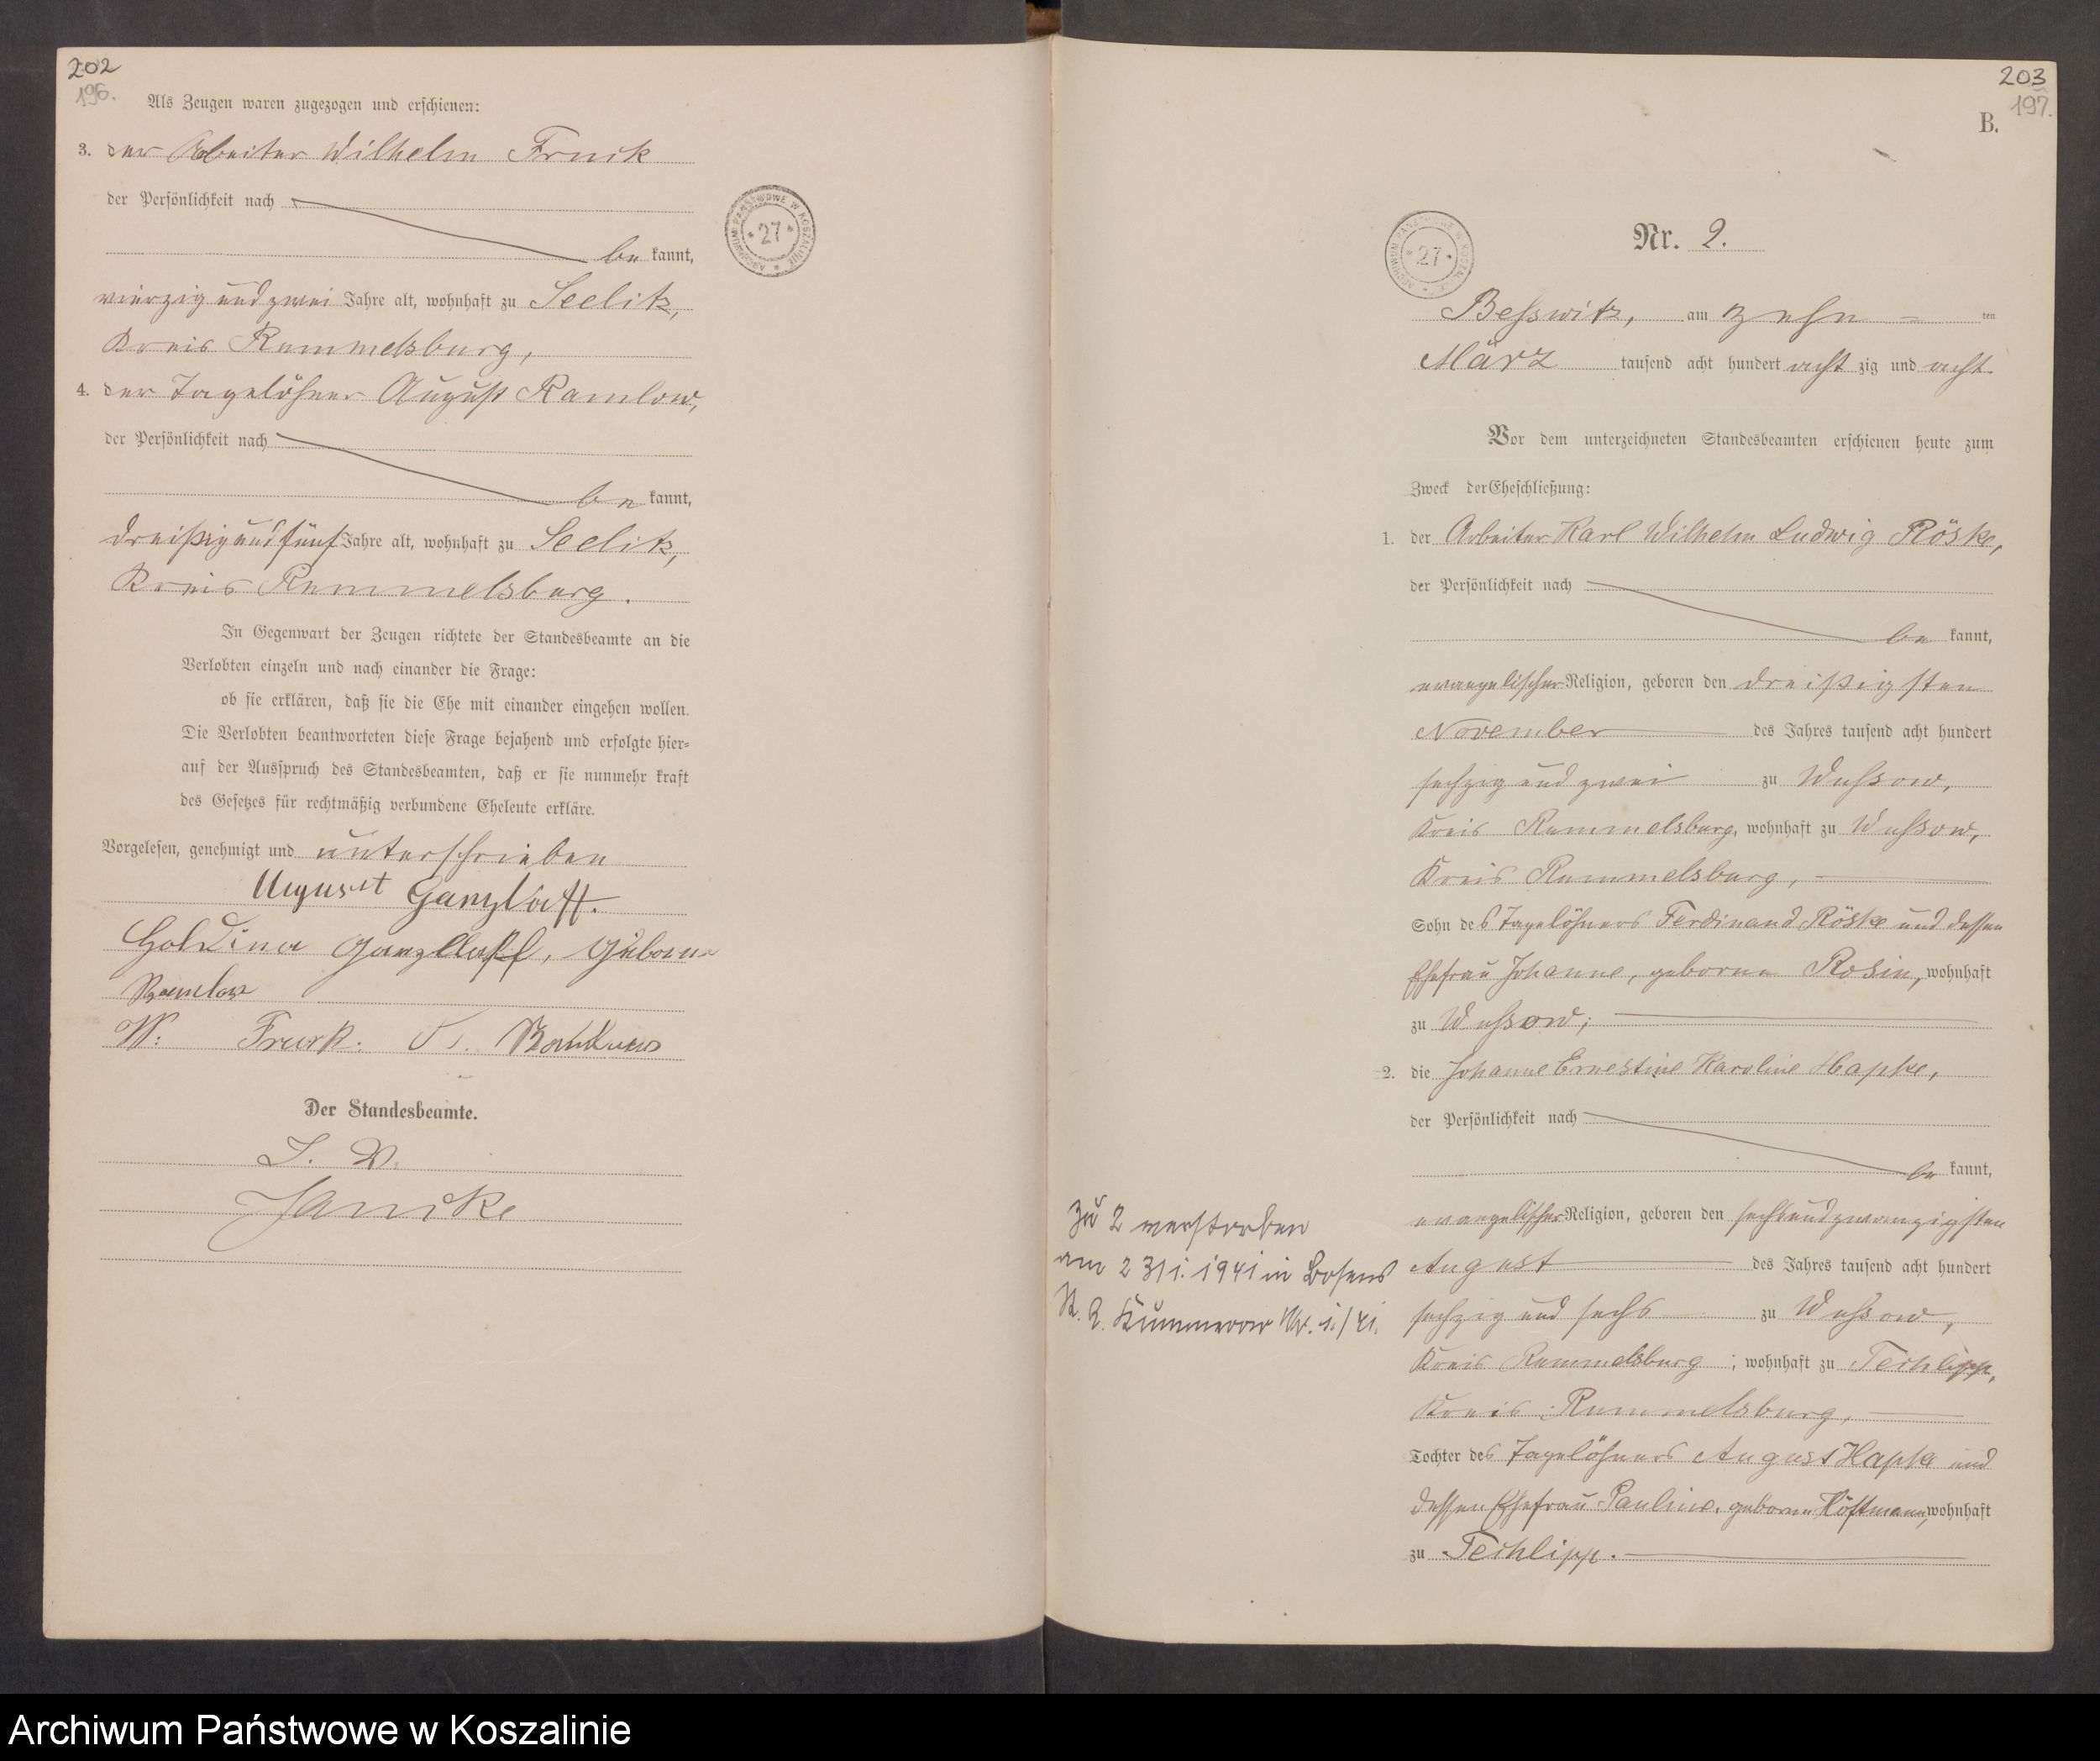 202
196.
Als Zeugen waren zugezogen und erschienen:
3. der Arbeiter Wilhelm Fruck
der Persönlichkeit nach
be kannt,
vierzig und zwei Jahre alt, wohnhaft zu Seelitz,
Kreis Rummelsburg,
4. der Tagelöhner August Ramlow,
der Persönlichkeit nach
be kannt,
dreißig und fünf Jahre alt, wohnhaft zu Seelitz,
Kreis Rummelsburg.
In Gegenwart der Zeugen richtete der Standesbeamte an die
Verlobten einzeln und nach einander die Frage:
ob sie erklären, daß sie die Ehe mit einander eingehen wollen.
Die Verlobten beantworteten diese Frage bejahend und erfolgte hier-
auf der Ausspruch des Standesbeamten, daß er sie nunmehr kraft
des Gesetzes für rechtmäßig verbundene Eheleute erkläre.
Vorgelesen, genehmigt und unterschrieben
August Ganzlaff.
Ganzlaff, geborne
Ramlow
W. Fruck.
Der Standesbeamte.
I. V.
Janicke
ARCHIWUM PAŃSTWOWE W KOSZALINIE
* 27 *
203
197.
B.
ARCHIWUM PAŃSTWOWE W KOSZALINIE
* 27 *
Nr. 2.
Besswitz, am zehn ten
März tausend acht hundert acht zig und acht.
Vor dem unterzeichneten Standesbeamten erschienen heute zum
Zweck der Eheschließung:
1. der Arbeiter Karl Wilhelm Ludwig Röske,
der Persönlichkeit nach
be kannt,
evangelischer Religion, geboren den dreißigsten
November des Jahres tausend acht hundert
sechzig und zwei zu Wussow,
Kreis Rummelsburg, wohnhaft zu Wussow,
Kreis Rummelsburg,
Sohn des Tagelöhners Ferdinand Röske und dessen
Ehefrau Johanne, geborne Rosin, wohnhaft
zu Wussow;
2. die Johanne Ernestine Karoline Hapke,
der Persönlichkeit nach
be kannt,
evangelischer Religion, geboren den sechsundzwanzigsten
August des Jahres tausend acht hundert
sechzig und sechs zu Wussow,
Kreis Rummelsburg; wohnhaft zu Techlipp,
Kreis Rummelsburg,
Tochter des Tagelöhners August Hapke und
dessen Ehefrau Pauline, geborne Höftmann, wohnhaft
zu Techlipp.
Zu 2 verstorben
am 1941 in
Kummerow Nr. 1/41.
Archiwum Państwowe w Koszalinie